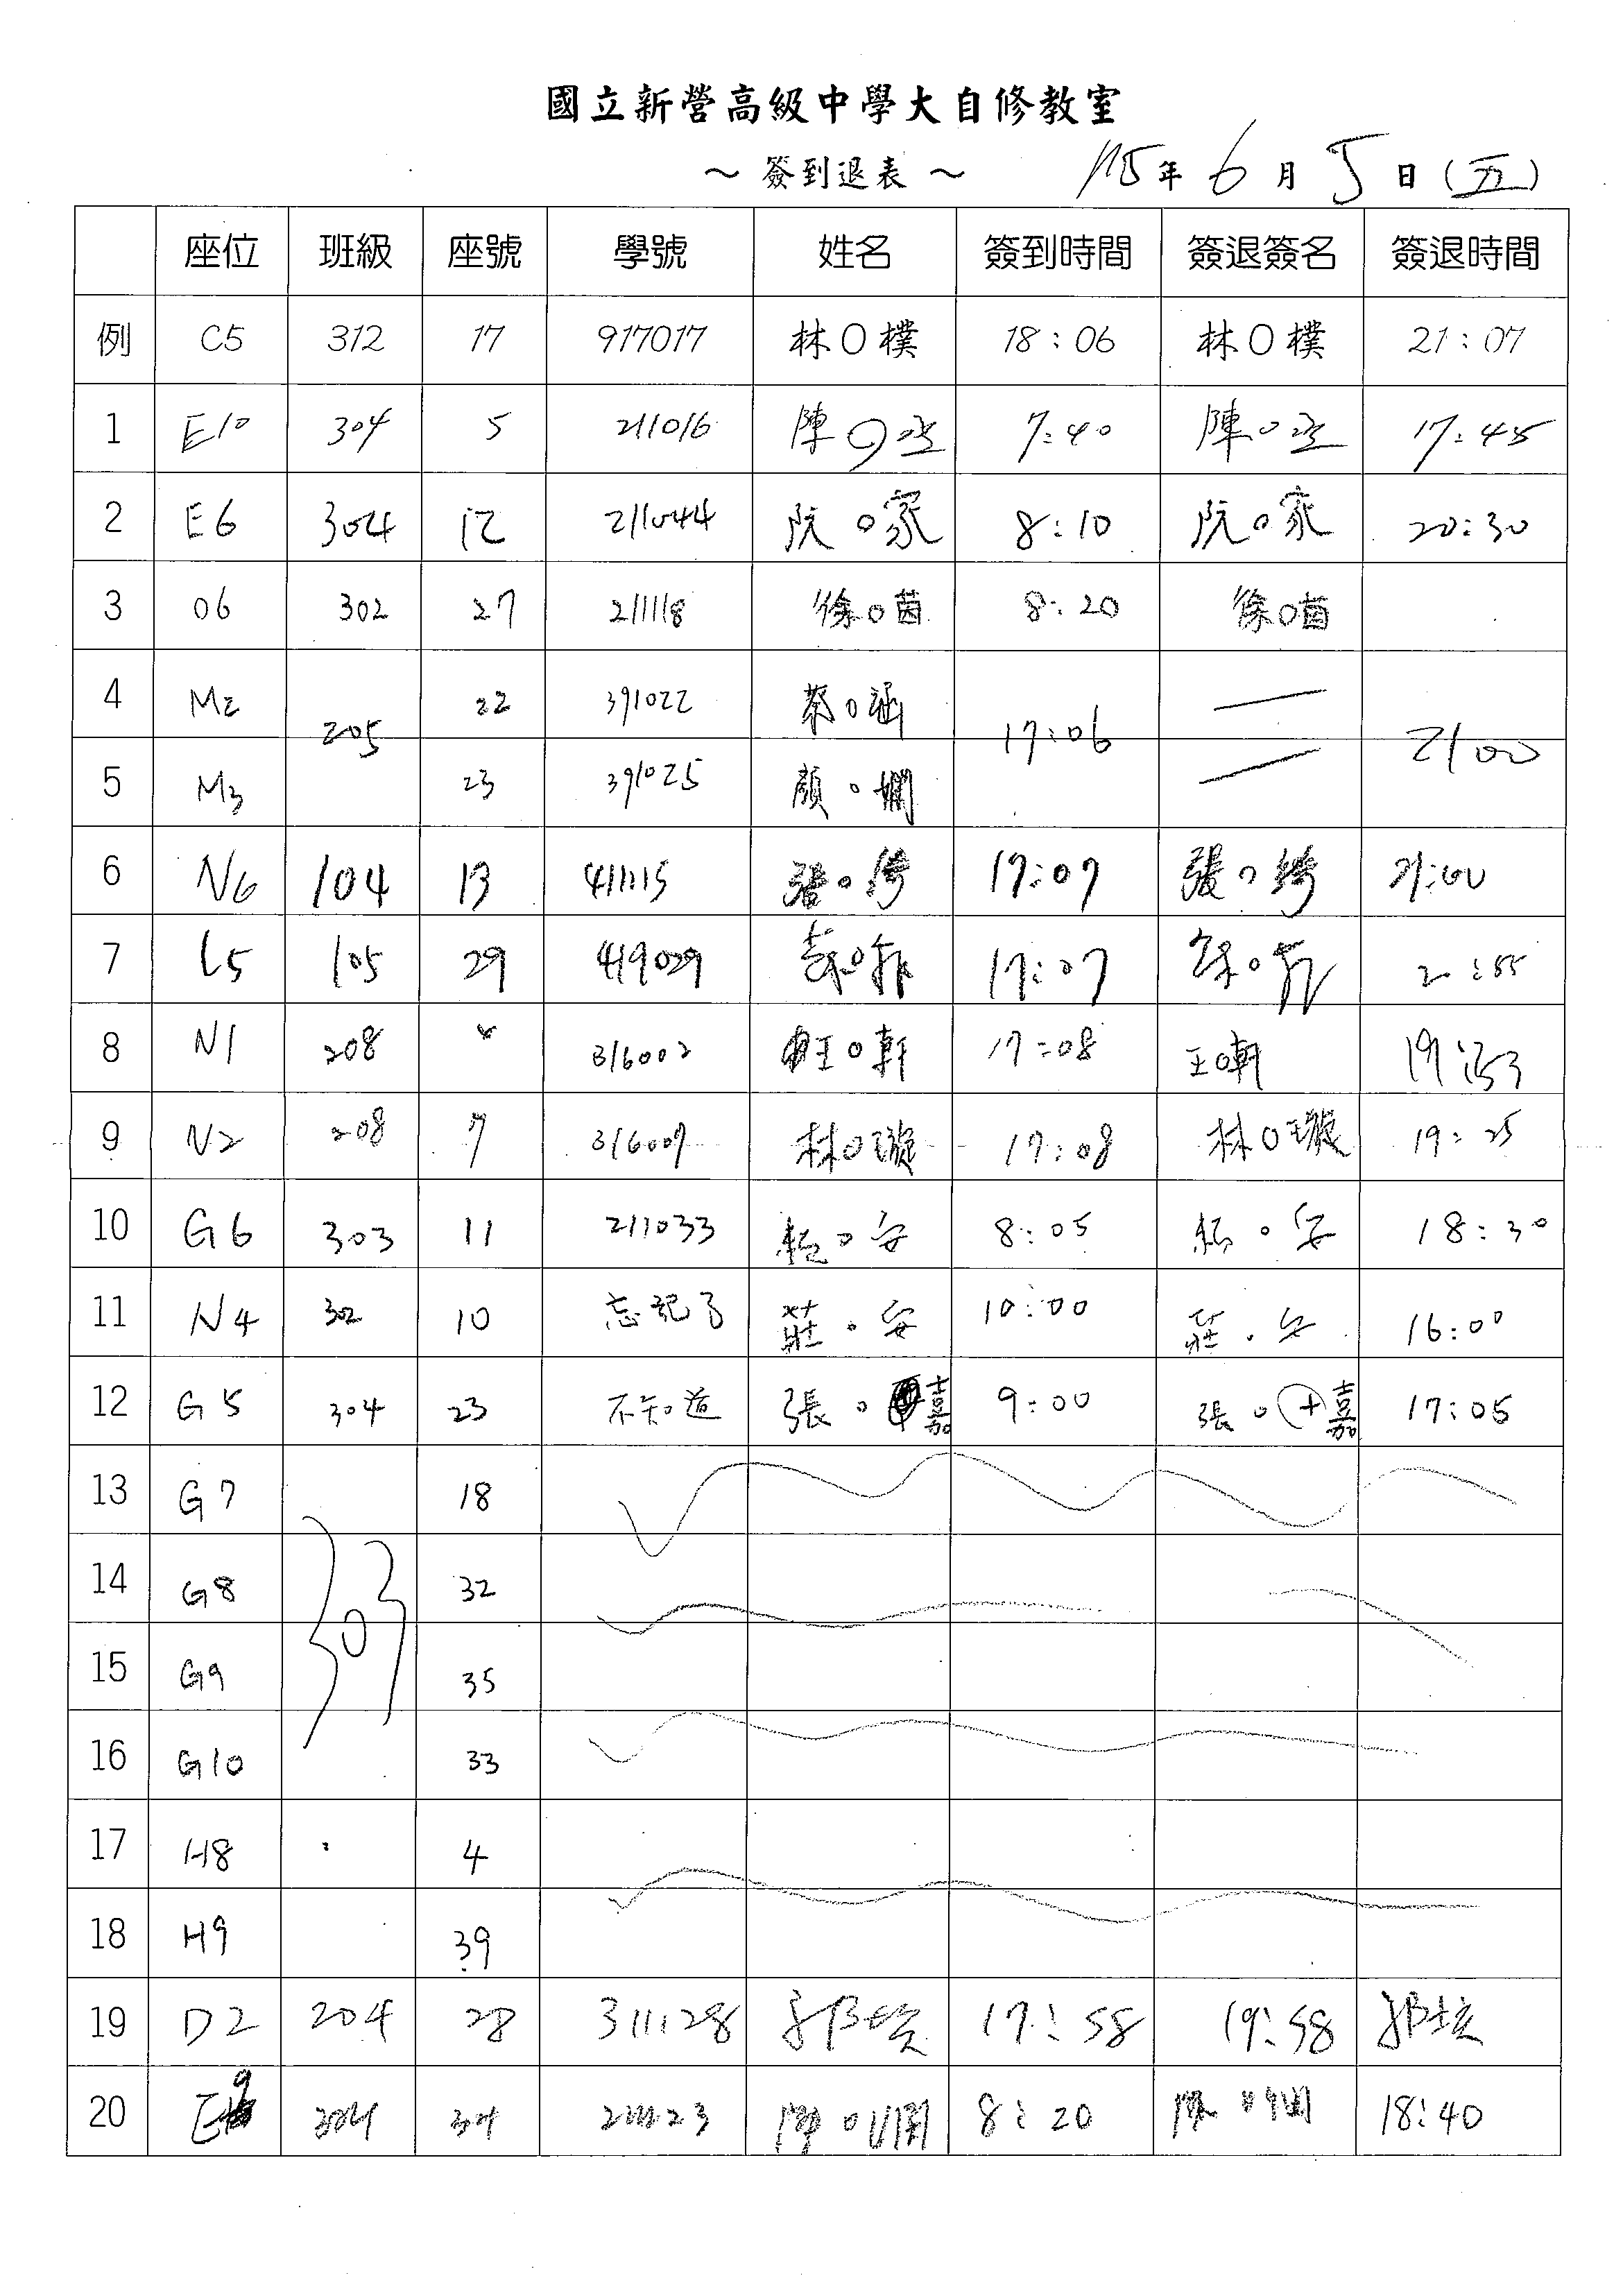 國立新營高級中學大自修教室
～ 簽到退表 ～ 115年 6月 5日 (五)
座位 班級 座號 學號 姓名 簽到時間 簽退簽名 簽退時間
例 C5 312 17 917017 林O樸 18:06 林O樸 21:07
1 E10 304 5 211016 陳O 7:40 陳O 17:45
2 E6 304 12 211044 阮O家 8:10 阮O家 20:30
3 O6 302 27 211118 徐O茵 8:20 徐O茵
4 M2 205 22 391022 蔡O涵 17:06 2100
5 M3 23 391025 顏O嫻
6 N6 104 13 411115 張O綺 17:07 張O綺 21:00
7 L5 105 29 419029 17:07 20:55
8 N1 208 316002 王O軒 17:08 王O軒 19:53
9 N2 208 7 316007 林O璇 17:08 林O璇 19:25
10 G6 303 11 211033 O安 8:05 O安 18:30
11 N4 302 10 忘記了 莊O安 10:00 莊O安 16:00
12 G5 304 23 不知道 張O嘉 9:00 張O嘉 17:05
13 G7 18
14 G8 303 32
15 G9 35
16 G10 33
17 H8 4
18 H9 39
19 D2 204 28 311128 17:58 19:58
20 E9 304 34 211123 8:20 18:40